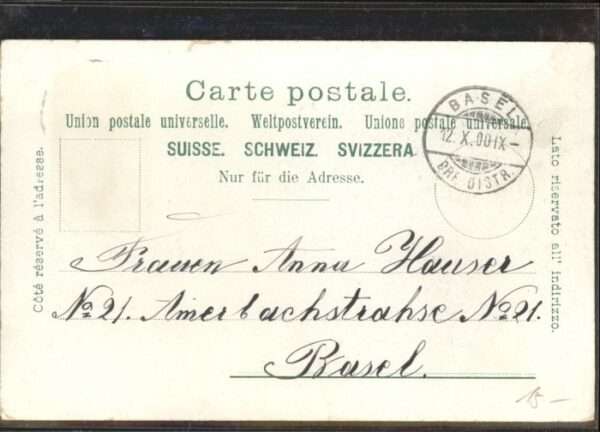 Carte postale.
Union postale universelle. Weltpostverein. Unione postale universale.
SUISSE. SCHWEIZ. SVIZZERA.
Nur für die Adresse.
BASEL
12. X. 00 IX-
BRF. DISTR.
Côté réservé à l'adresse.
Lato riservato all' indirizzo.
Frauen Anna Hauser
No 21. Amerbachstrahse No 21.
Basel.
15 -